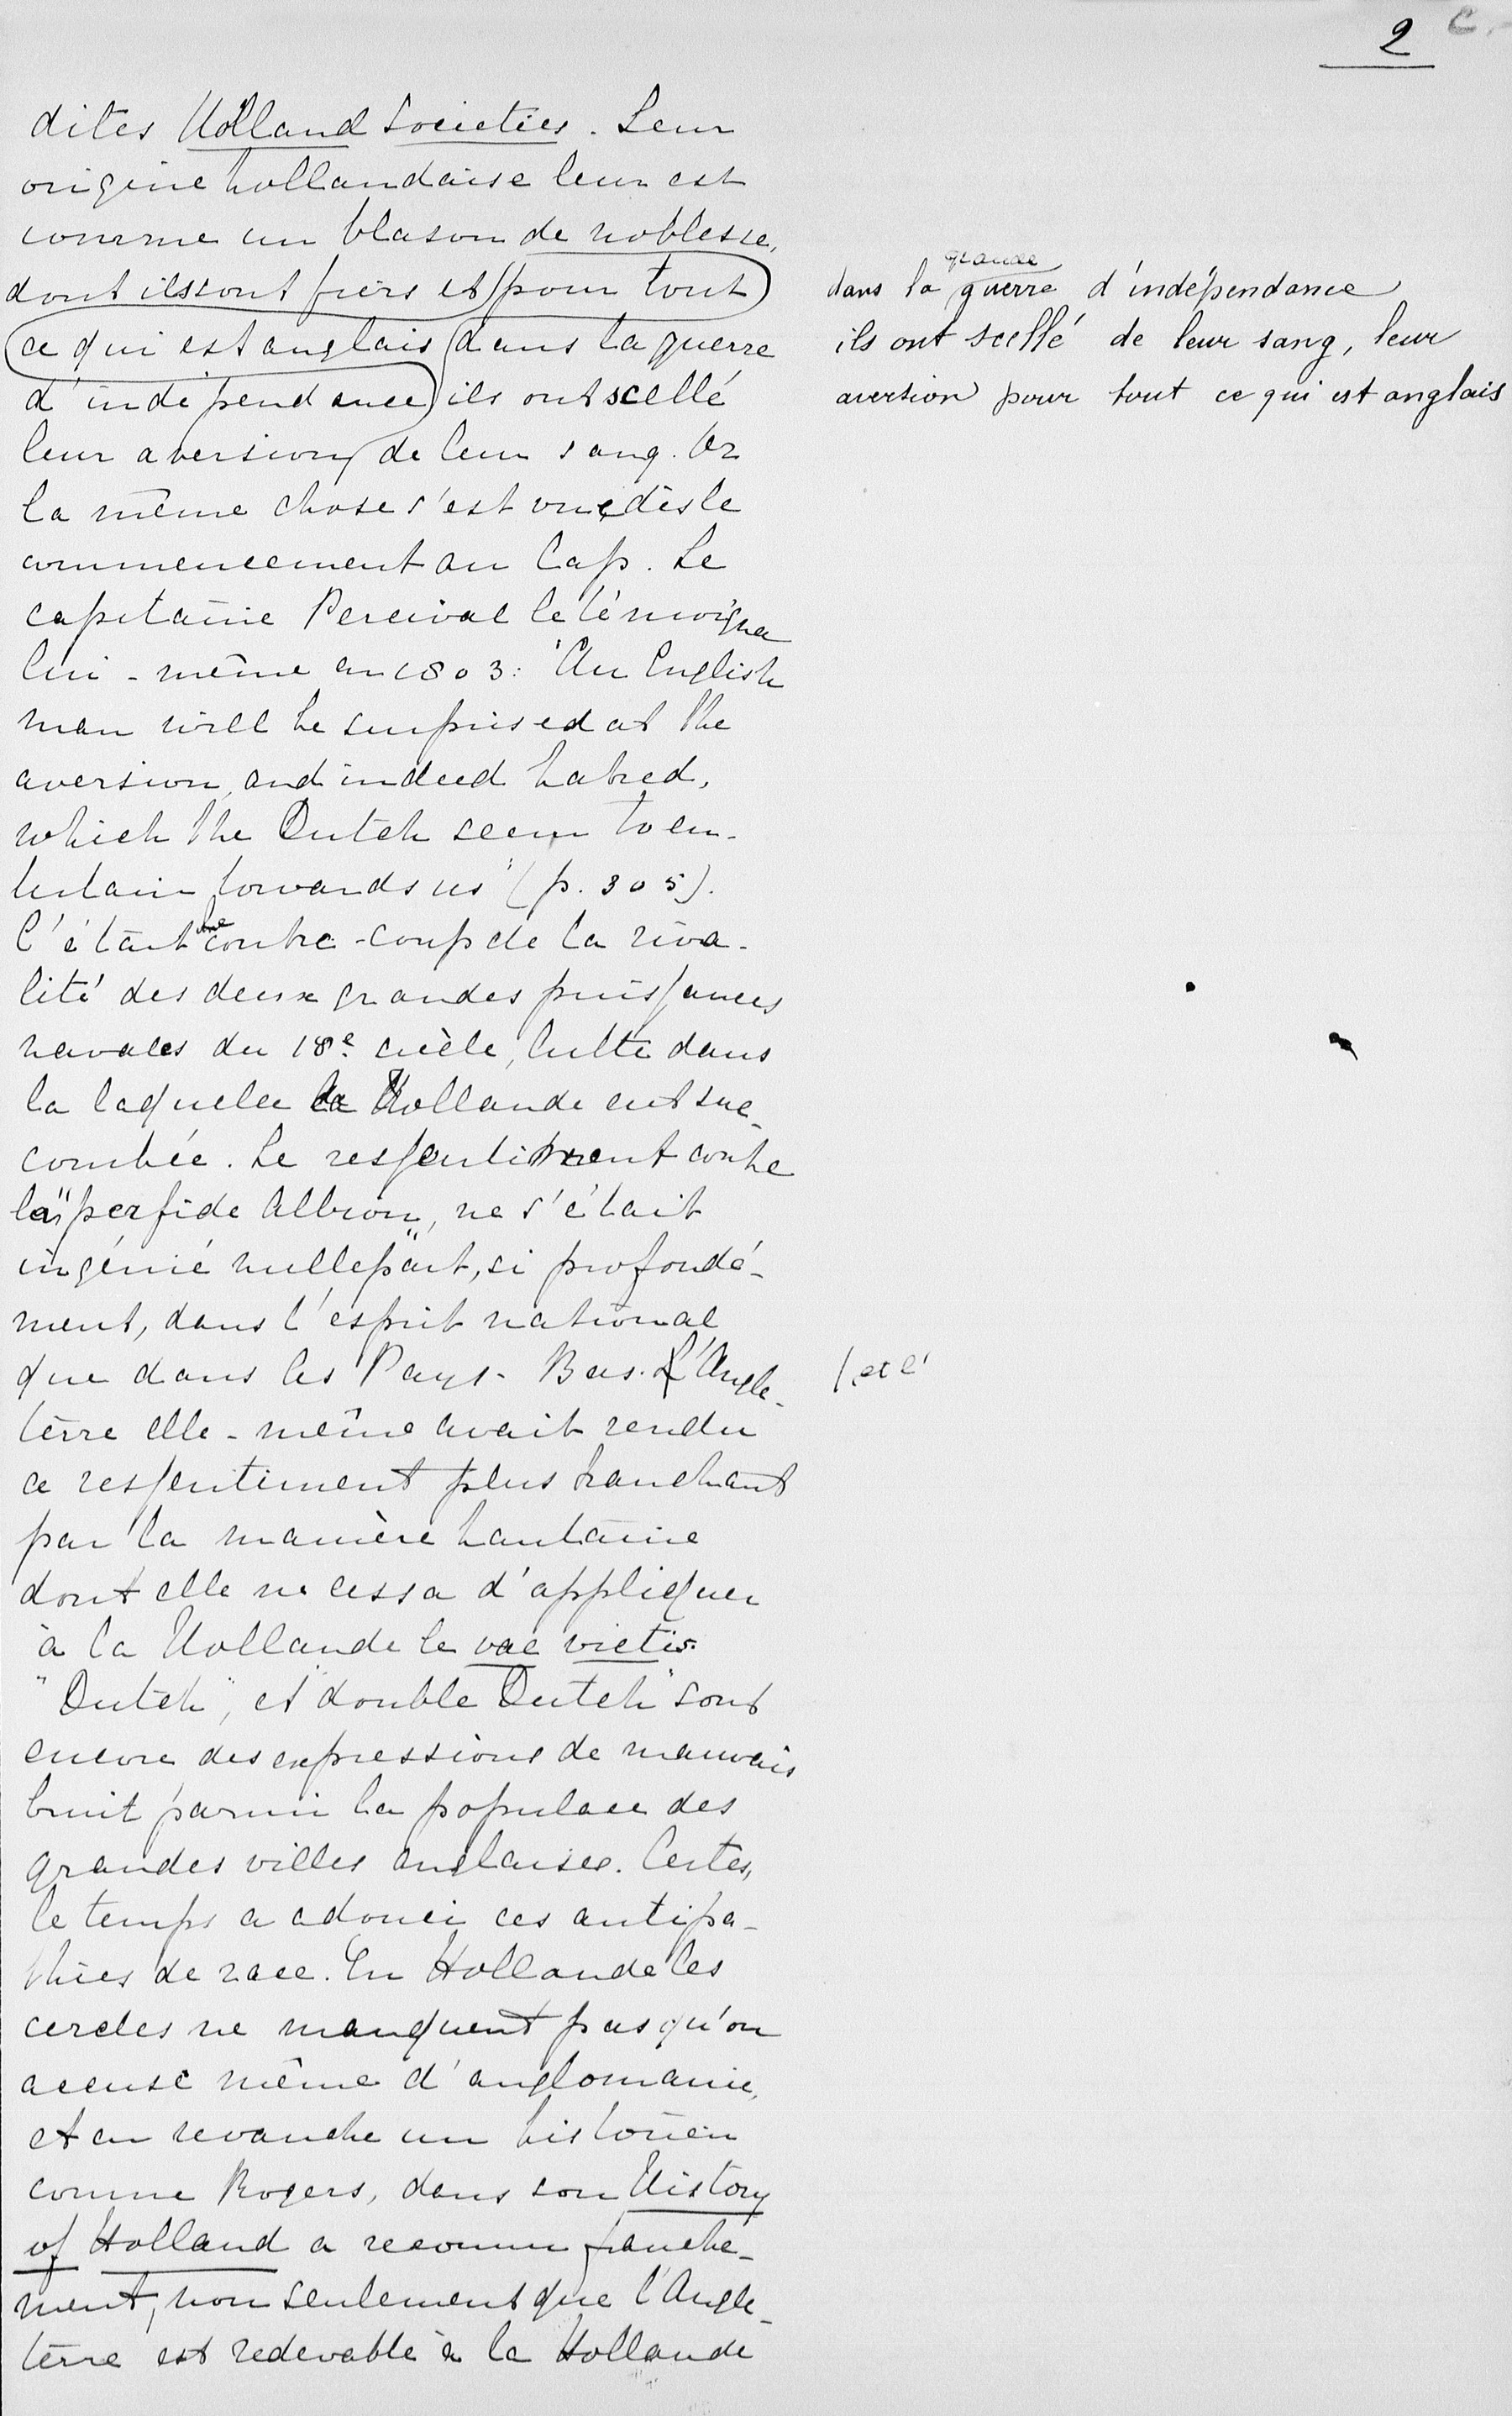 2 C.
dites Holland Societies. Leur
origine hollandaise leur est
comme un blason de noblesse,
dont ils sont fiers et pour tout
ce qui est anglais dans la guerre
d'indépendance ils ont scellé
leur aversion de leur sang. Or
la même chose s'est vue dès le
commencement au Cap. Le
capitaine Percival le témoigna
lui-même en 1803: "An English
man will be surprised at the
aversion, and indeed hatred,
which the Dutch seem to en-
tertain towards us" (p. 305).
C'était une contre-coup de la riva-
lité des deux grandes puissances
navales du 18e siècle, lutte dans
la laquelle la Hollande eut suc-
combée. Le ressentiment contre
la "perfide Albion", ne s'était
ingénié nullepart, si profondé-
ment, dans l'esprit national
que dans les Pays-Bas. L'Angle-
terre elle-même avait rendu
ce ressentiment plus tranchant
par la manière hautaine
dont elle ne cessa d'appliquer
à la Hollande le vae victis.
"Dutch", et "double Dutch" sont
encore des expressions de mauvais
bruit parmi la populace des
grandes villes anglaises. Certes,
le temps a adouci ces antipa-
thies de race. En Hollande les
cercles ne manquent pas qu'on
accuse même d'anglomanie,
et en revanche un historien
comme Rogers, dans son History
of Holland a reconnu franche-
ment, non seulement que l'Angle-
terre est redevable à la Hollande
grande
dans la guerre d'indépendance
ils ont scellé de leur sang, leur
aversion pour tout ce qui est anglais
/ et l'